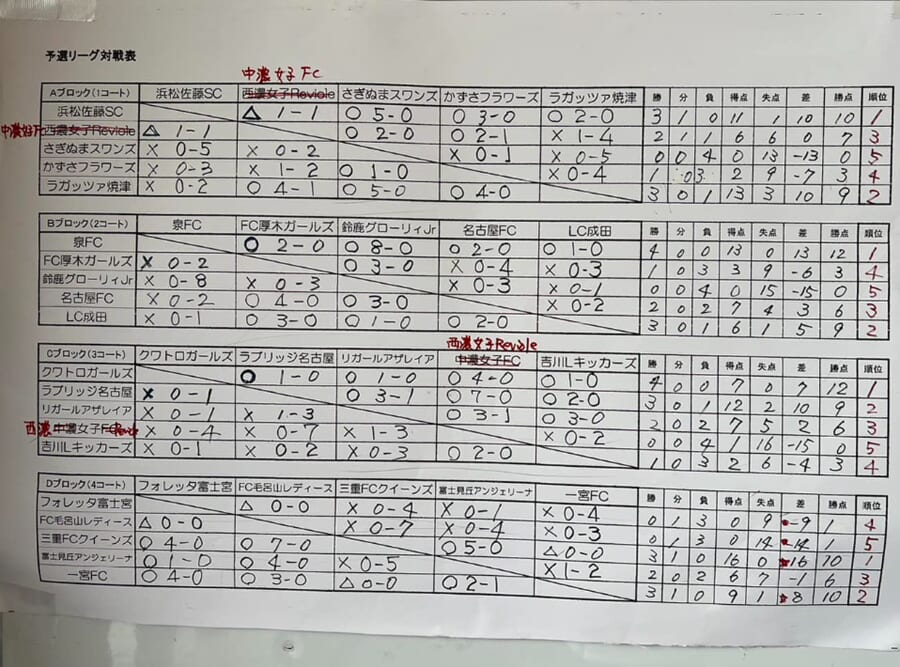 予選リーグ対戦表
中濃女子FC
Aブロック(1コート) 浜松佐藤SC 西濃女子Reviole さぎぬまスワンズ かずさフラワーズ ラガッツァ焼津 勝 分 負 得点 失点 差 勝点 順位
浜松佐藤SC △ 1-1 ○ 5-0 ○ 3-0 ○ 2-0 3 1 0 11 1 10 10 1
中濃女子FC 西濃女子Reviole △ 1-1 ○ 2-0 ○ 2-1 × 1-4 2 1 1 6 6 0 7 3
さぎぬまスワンズ × 0-5 × 0-2 × 0-1 × 0-5 0 0 4 0 13 -13 0 5
かずさフラワーズ × 0-3 × 1-2 ○ 1-0 × 0-4 1 0 3 2 9 -7 3 4
ラガッツァ焼津 × 0-2 ○ 4-1 ○ 5-0 ○ 4-0 3 0 1 13 3 10 9 2
Bブロック(2コート) 泉FC FC厚木ガールズ 鈴鹿グローリィJr 名古屋FC LC成田 勝 分 負 得点 失点 差 勝点 順位
泉FC ○ 2-0 ○ 8-0 ○ 2-0 ○ 1-0 4 0 0 13 0 13 12 1
FC厚木ガールズ × 0-2 ○ 3-0 × 0-4 × 0-3 1 0 3 3 9 -6 3 4
鈴鹿グローリィJr × 0-8 × 0-3 × 0-3 × 0-1 0 0 4 0 15 -15 0 5
名古屋FC × 0-2 ○ 4-0 ○ 3-0 × 0-2 2 0 2 7 4 3 6 3
LC成田 × 0-1 ○ 3-0 ○ 1-0 ○ 2-0 3 0 1 6 1 5 9 2
西濃女子Reviole
Cブロック(3コート) クワトロガールズ ラブリッジ名古屋 リガールアザレイア 中濃女子FC 吉川Lキッカーズ 勝 分 負 得点 失点 差 勝点 順位
クワトロガールズ ○ 1-0 ○ 1-0 ○ 4-0 ○ 1-0 4 0 0 7 0 7 12 1
ラブリッジ名古屋 × 0-1 ○ 3-1 ○ 7-0 ○ 2-0 3 0 1 12 2 10 9 2
リガールアザレイア × 0-1 × 1-3 ○ 3-1 ○ 3-0 2 0 2 7 5 2 6 3
西濃 中濃女子FC × 0-4 × 0-7 × 1-3 × 0-2 0 0 4 1 16 -15 0 5
吉川Lキッカーズ × 0-1 × 0-2 × 0-3 ○ 2-0 1 0 3 2 6 -4 3 4
Dブロック(4コート) フォレッタ富士宮 FC毛呂山レディース 三重FCクイーンズ 富士見丘アンジェリーナ 一宮FC 勝 分 負 得点 失点 差 勝点 順位
フォレッタ富士宮 △ 0-0 × 0-4 × 0-1 × 0-4 0 1 3 0 9 -9 1 4
FC毛呂山レディース △ 0-0 × 0-7 × 0-4 × 0-3 0 1 3 0 14 -14 1 5
三重FCクイーンズ ○ 4-0 ○ 7-0 ○ 5-0 △ 0-0 3 1 0 16 0 16 10 1
富士見丘アンジェリーナ ○ 1-0 ○ 4-0 × 0-5 × 1-2 2 0 2 6 7 -1 6 3
一宮FC ○ 4-0 ○ 3-0 △ 0-0 ○ 2-1 3 1 0 9 1 8 10 2